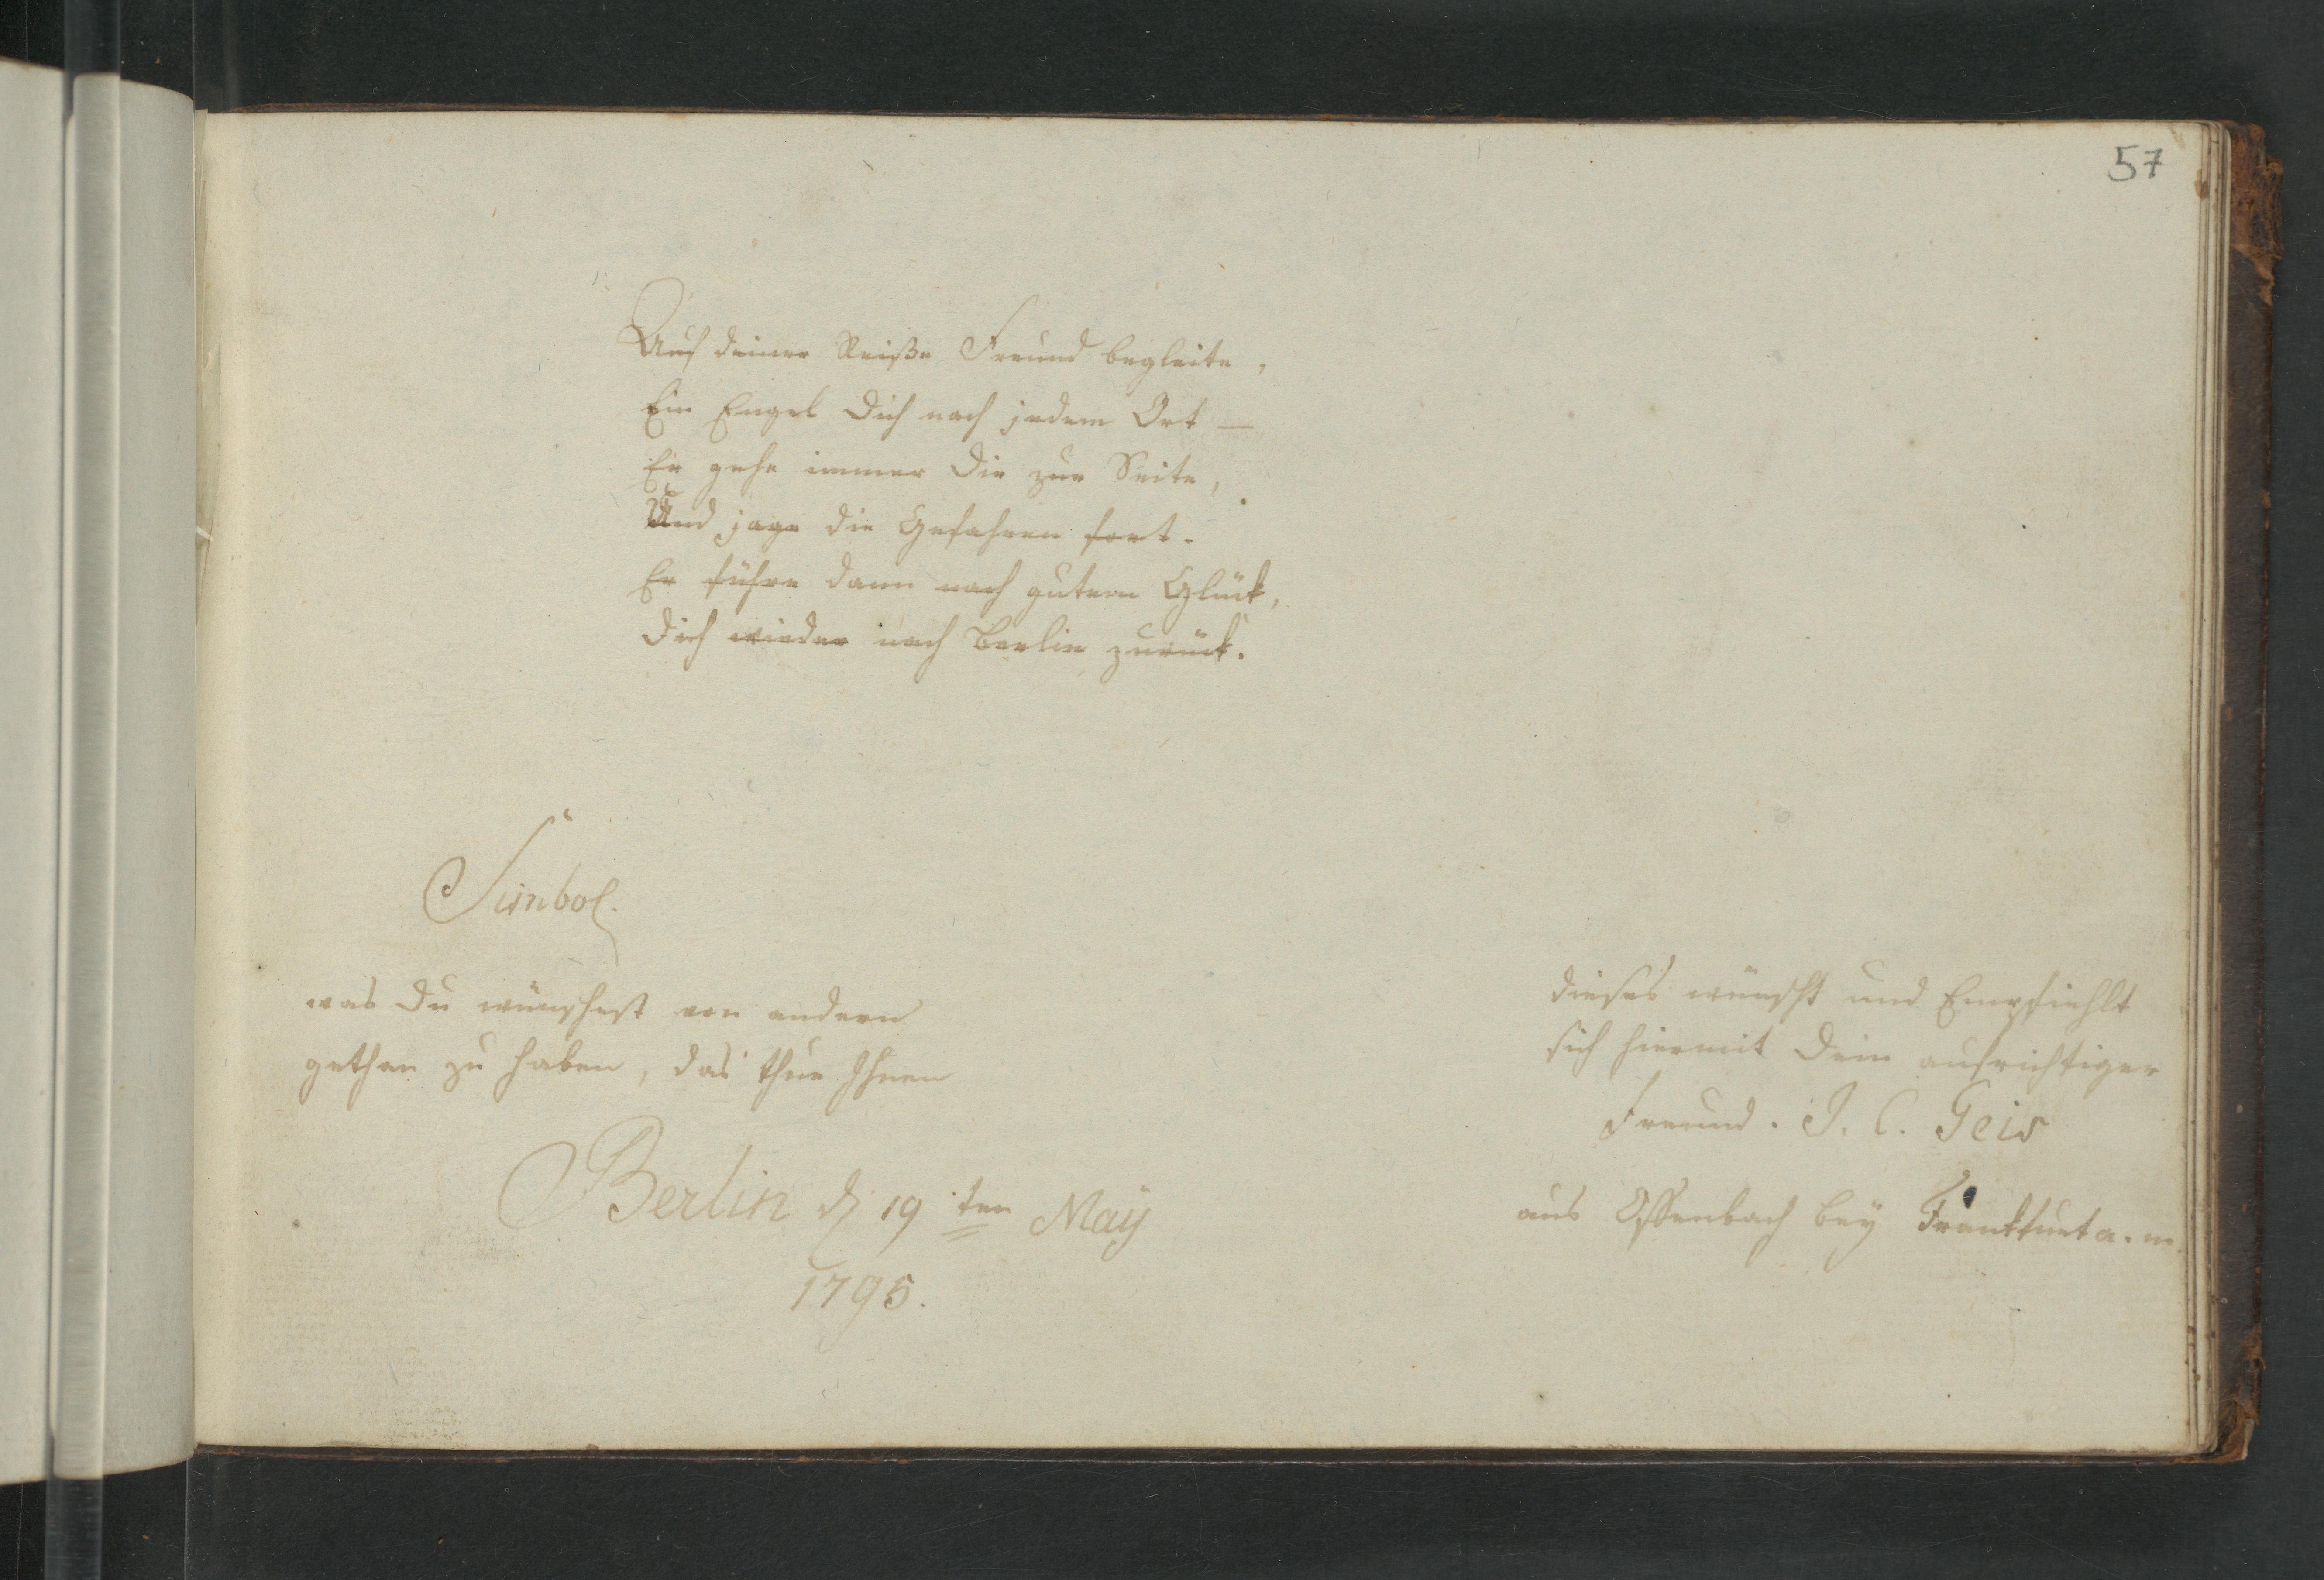 57
Auf deiner Reiße Freund begleite,
Ein Engel Dich nach jedem Ort —
Er gehe immer Dir zur Seite,
Und jage die Gefahren fort.
Er führe dann nach gutem Glück,
Dich wieder nach Berlin zurück.
Simbol.
was Du wünschest von andern
gethan zu haben, das thue Ihnen
Berlin d 19ten May
1795.
dieses wünscht und Empfiehlt
sich hiermit Dein aufrichtiger
Freund. J. C. Geis
aus Offenbach bey Frankfurt a. m.